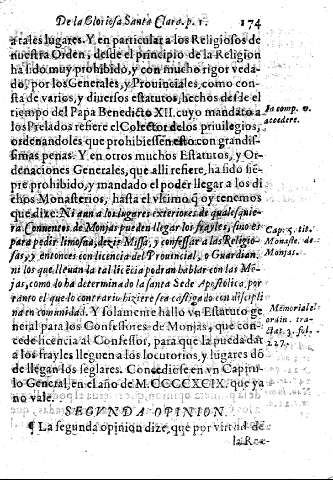 De la Gloriosa Santa Clara. p. 1.
174
a tales lugares. Y en particular a los Religiosos de
nuestra Orden, desde el principio de la Religion
ha sido muy prohibido, y con mucho rigor veda-
do, por los Generales, y Prouinciales, como con-
sta de varios, y diuersos estatutos, hechos desde el
tiempo del Papa Benedicto XII. cuyo mandato a
los Prelados refiere el Colector de los priuilegios,
ordenandoles que prohibiessen esto con grandis-
simas penas. Y en otros muchos Estatutos, y Or-
denaciones Generales, que alli refiere, ha sido siē-
pre prohibido, y mandado el poder llegar a los di
chos Monasterios, hasta el vltimo q̄ oy tenemos
que dize: Ni aun a los lugares exteriores de qualesquie-
ra Conuentos de Monjas pueden llegar los frayles, sino es
para pedir limosna, dezir Missa, y confessar a las Religio-
sas, y entonces con licencia del Prouincial, o Guardian,
ni los que lleuan la tal licēcia podran hablar con las Mō-
jas, como lo ha determinado la santa Sede Apostolica, por
tanto el que lo contrario hiziere sea castigado con discipli
na en comunidad. Y solamente hallo vn Estatuto ge
neral para los Confessores de Monjas, que con-
cede licencia al Confessor, para que la pueda dar
a los frayles lleguen a los locutorios, y lugares dō
de llegan los seglares. Concediose en vn Capitu-
lo General, en el año de M.CCCCXCIX. que ya
no vale.
SEGVNDA OPINION.
¶ La segunda opinion dize, que por virtud de
la Re-
In comp. v.
accedere.
Cap. 5. tit.
Monaste. de
Monjas.
Memoriale
ordin. tra-
ctat. 3. fol.
227.